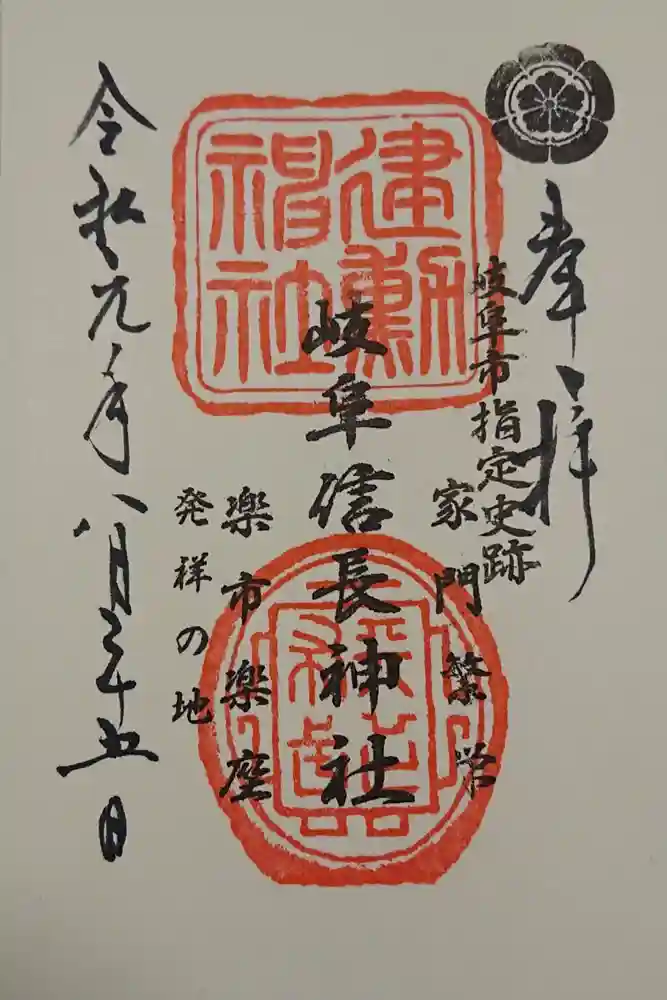 奉拝
岐阜市指定史跡
家門繁栄
岐阜信長神社
建勲
神社
楽市楽座
発祥の地
令和元年八月二十五日